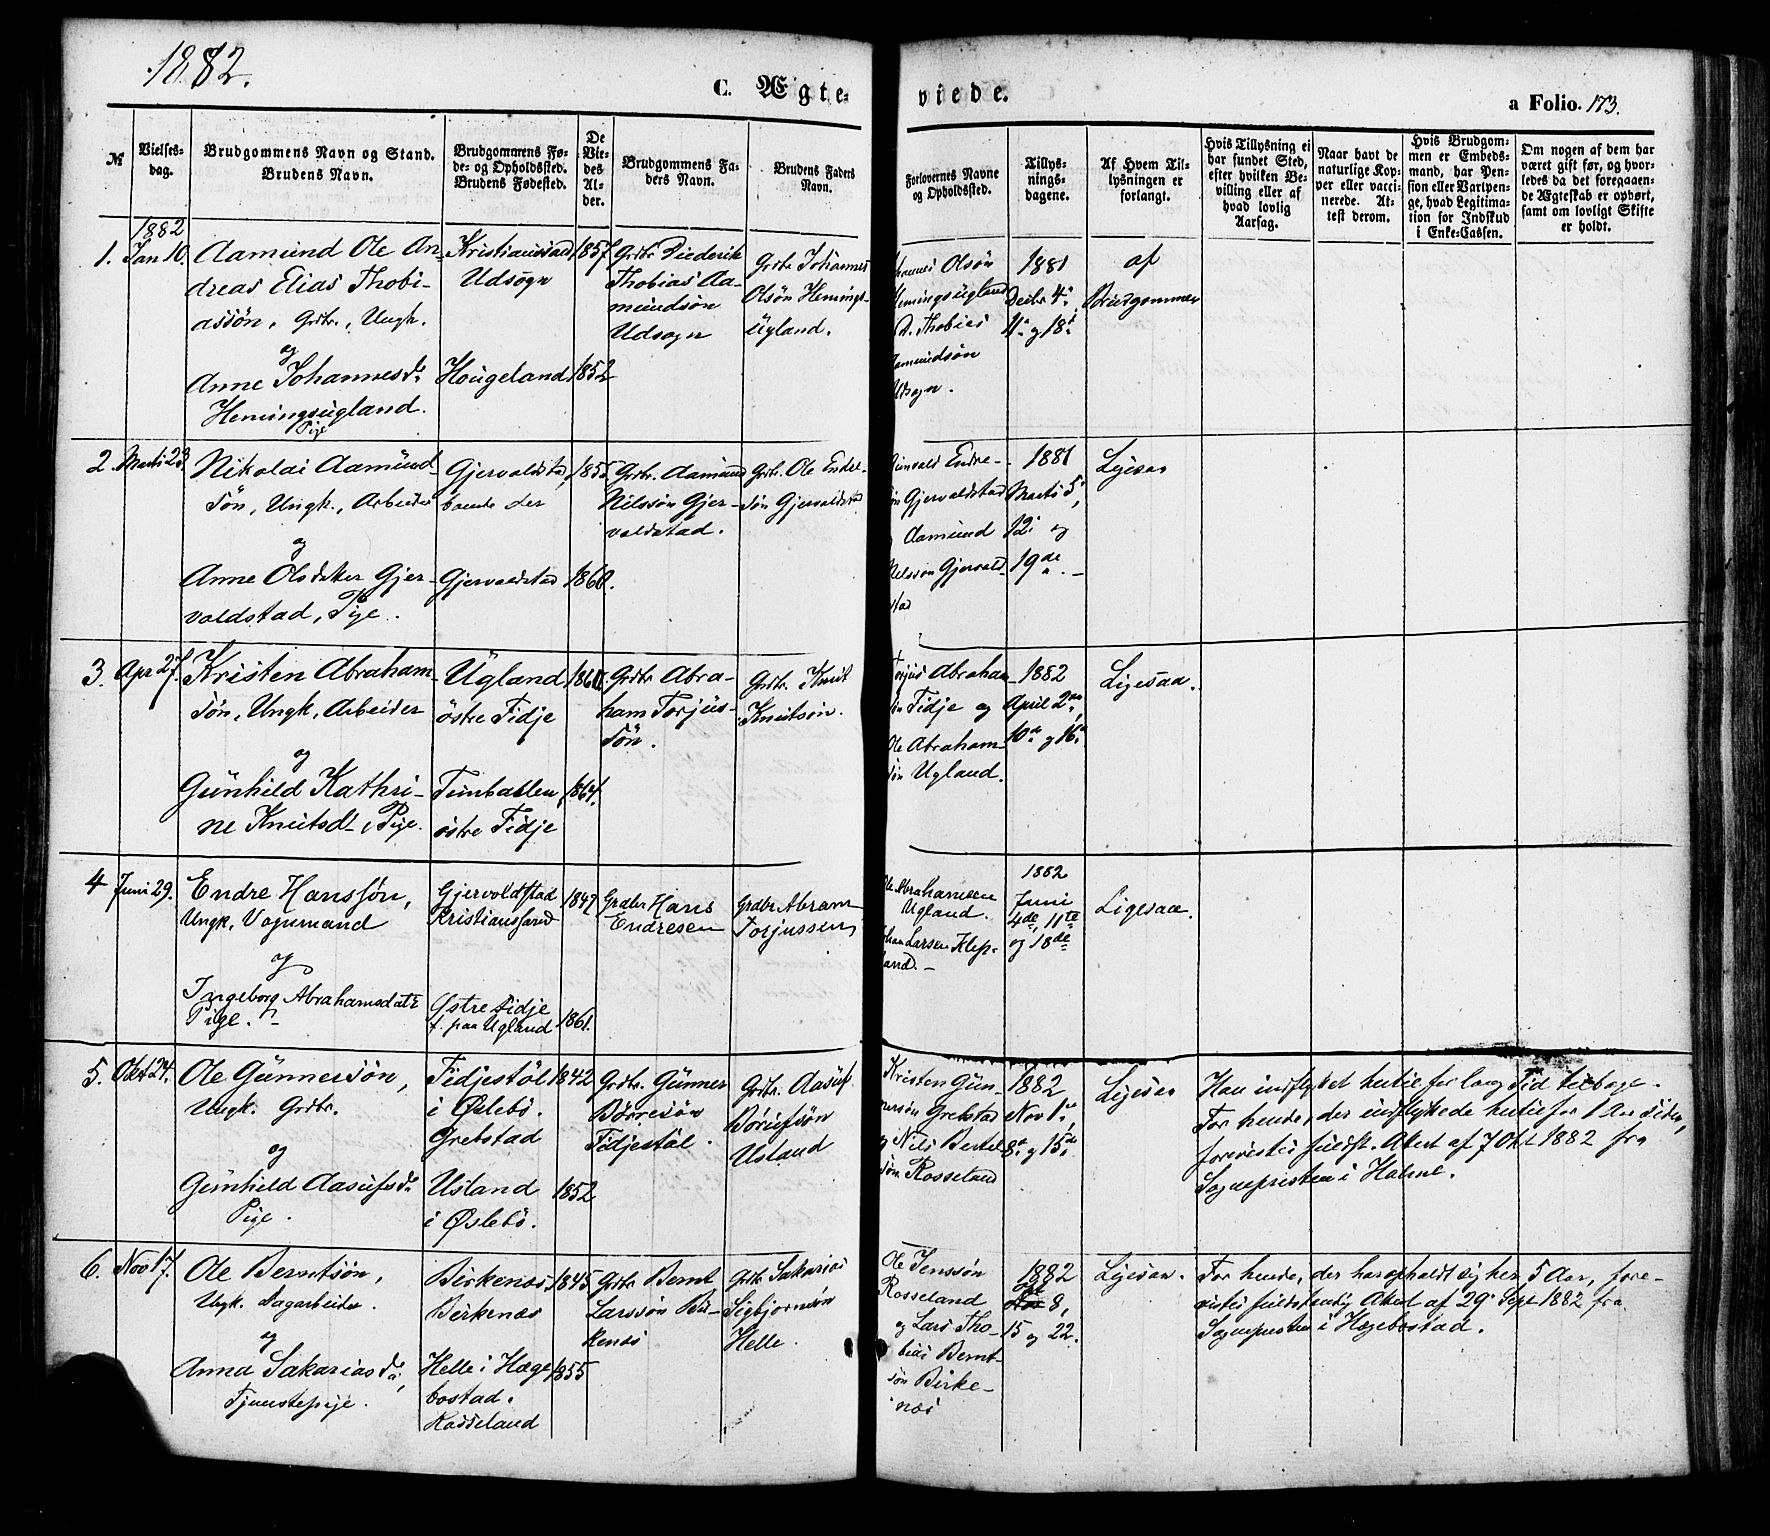 1882.
C. Ægte-
viede.
a Folio. 173.
№
Vielses-
dag.
Brudgommens Navn og Stand.
Brudens Navn.
Brudgommens Fø-
de- og Opholdssted.
Brudens Fødested.
De
Vie-
des
Al-
der.
Brudgommens Fa-
ders Navn.
Brudens Faders
Navn.
Forlovernes Navne
og Opholdssted.
Tillys-
nings-
dagene.
Af Hvem Til-
lysningen er
forlangt.
Hvis Tillysning ei
har fundet Sted,
efter hvilken Be-
villing eller af
hvad lovlig
Aarsag.
Naar havt de
naturlige Kop-
per eller vacci-
nerede. At-
test derom.
Hvis Brudgom-
men er Embeds-
mand, har Pen-
sion eller Vartpen-
ge, hvad Legitima-
tion for Indskud
i Enke-Cassen.
Om nogen af dem har
været gift før, og hvor-
ledes da det foregaaen-
de Ægteskab er ophørt,
samt om lovligt Skifte
er holdt.
1882
1.
Jan 10.
Aamund Ole An-
dreas Elias Thobi-
assön, Grdbr., Ungk.
og
Anne Johannesd.
Hemingsugland.
Pige
Kristianssand
Udsogn
Hougeland
1857
1852
Grdbr Diederik
Thobias Aa-
mundsön
Udsogn
Grdbr Johannes
Olsön Hemings-
ugland.
hannes Olsön
Hemingsugland
D. Thobias
Aamundsön
Udsogn.
1881
Decbr 4.
11. og 18.
af
Brudgommen
2.
Marts 23
Nikolai Aamund-
sön, Ungk., Arbeider
og
Anne Olsdatter Gjer-
voldstad, Pige.
Gjervoldstad,
boende der
Gjervoldstad
1855
1860.
Grdbr. Aamund
Nilssön Gjer-
voldstad.
Grdbr. Ole Endre-
sön Gjervoldstad
Endre-
sön Gjervoldstad
Aamund
Nilssön Gjervold-
stad
1881
Marts 5,
12. og
19de
Ligesaa
3.
Apr 27.
Kristen Abraham-
sön, Ungk, Arbeider
og
Gunhild Kathri-
ne Knutsd., Pige.
Ugland
östre Tidje
östre Tidje
1864.
Grdbr Abra-
ham Torjus-
sön.
Grdbr. Knut
Knutsön.
Torjus Abraham-
sön Tidje og
Ole Abraham-
sön Ugland.
1882
April 2.,
10. og 16.
Ligesaa.
4
Juni 29.
Endre Hanssøn,
Ungk, Vognmand
og
Ingeborg Abrahamsdatr
Pige.
Gjervoldstad
Kristianssand
Østre Tidje
f. paa Ugland
1847
1861.
Grdbr Hans
Endresen
Grdbr Abram
Torjussen
Ole Abrahamsen
Ugland.
Larsen Klep-
land.
1882
Juni
4de, 11te
og 18de
Ligesaa.
5.
Okt 24.
Ole Gunnersön,
Ungk. Grdbr.
og
Gunhild Aasulfsd.
Pige.
Tidjestöl
i Øslebö.
Grebstad
Usland
i Øslebö.
1842
1852
Grdbr. Gunner
Börresön
Tidjestöl.
Grdbr. Aasulf
Börufsön
Usland
Kristen Gun-
nersön Grebstad
og Nils Bertel-
sön Rosseland
1882
Nov 1.,
8. og 15.
Ligesaa
Han indflyttet hertil for lang Tid tilbage.
For hende, der indflyttede hertil for 1 Aar siden,
forevistes fuldst. Attest af 7 Okt 1882 fra
Sognepresten i Holme.
6.
Nov 17.
Ole Berntsön,
Ungk. Dagarbeider.
og
Anna Sakariasd.,
Tjenestepige.
Birkenæs
Birkenæs
Helle i Hæge-
bostad.
Rosseland
1845
1855
Grdbr Bernt
Larssön Bir-
kenæs
Grdbr Sakarias
Sigbjornsön
Helle.
Ole Jenssön
Rosseland
og Lars Tho-
bias Bernt-
sön Birke-
næs
1882
Okt
8,
15 og 22.
Ligesaa.
For hende, der har opholdt sig her 5 Aar, fore-
vistes fuldstændig Attest af 29. Sept 1882 fra
Sognepresten i Hægebostad.